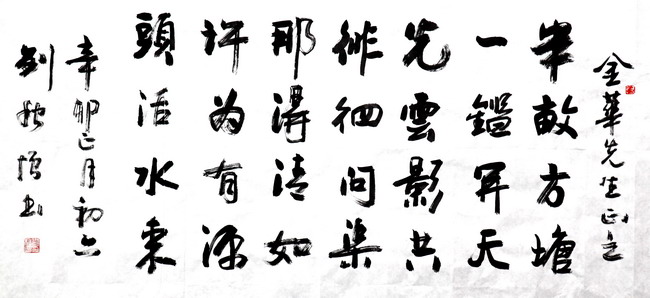 金華先生正之
半畝方塘
一鑑开天
光雲影共
徘徊問渠
那得清如
許為有源
頭活水来
辛卯正月初六
增書